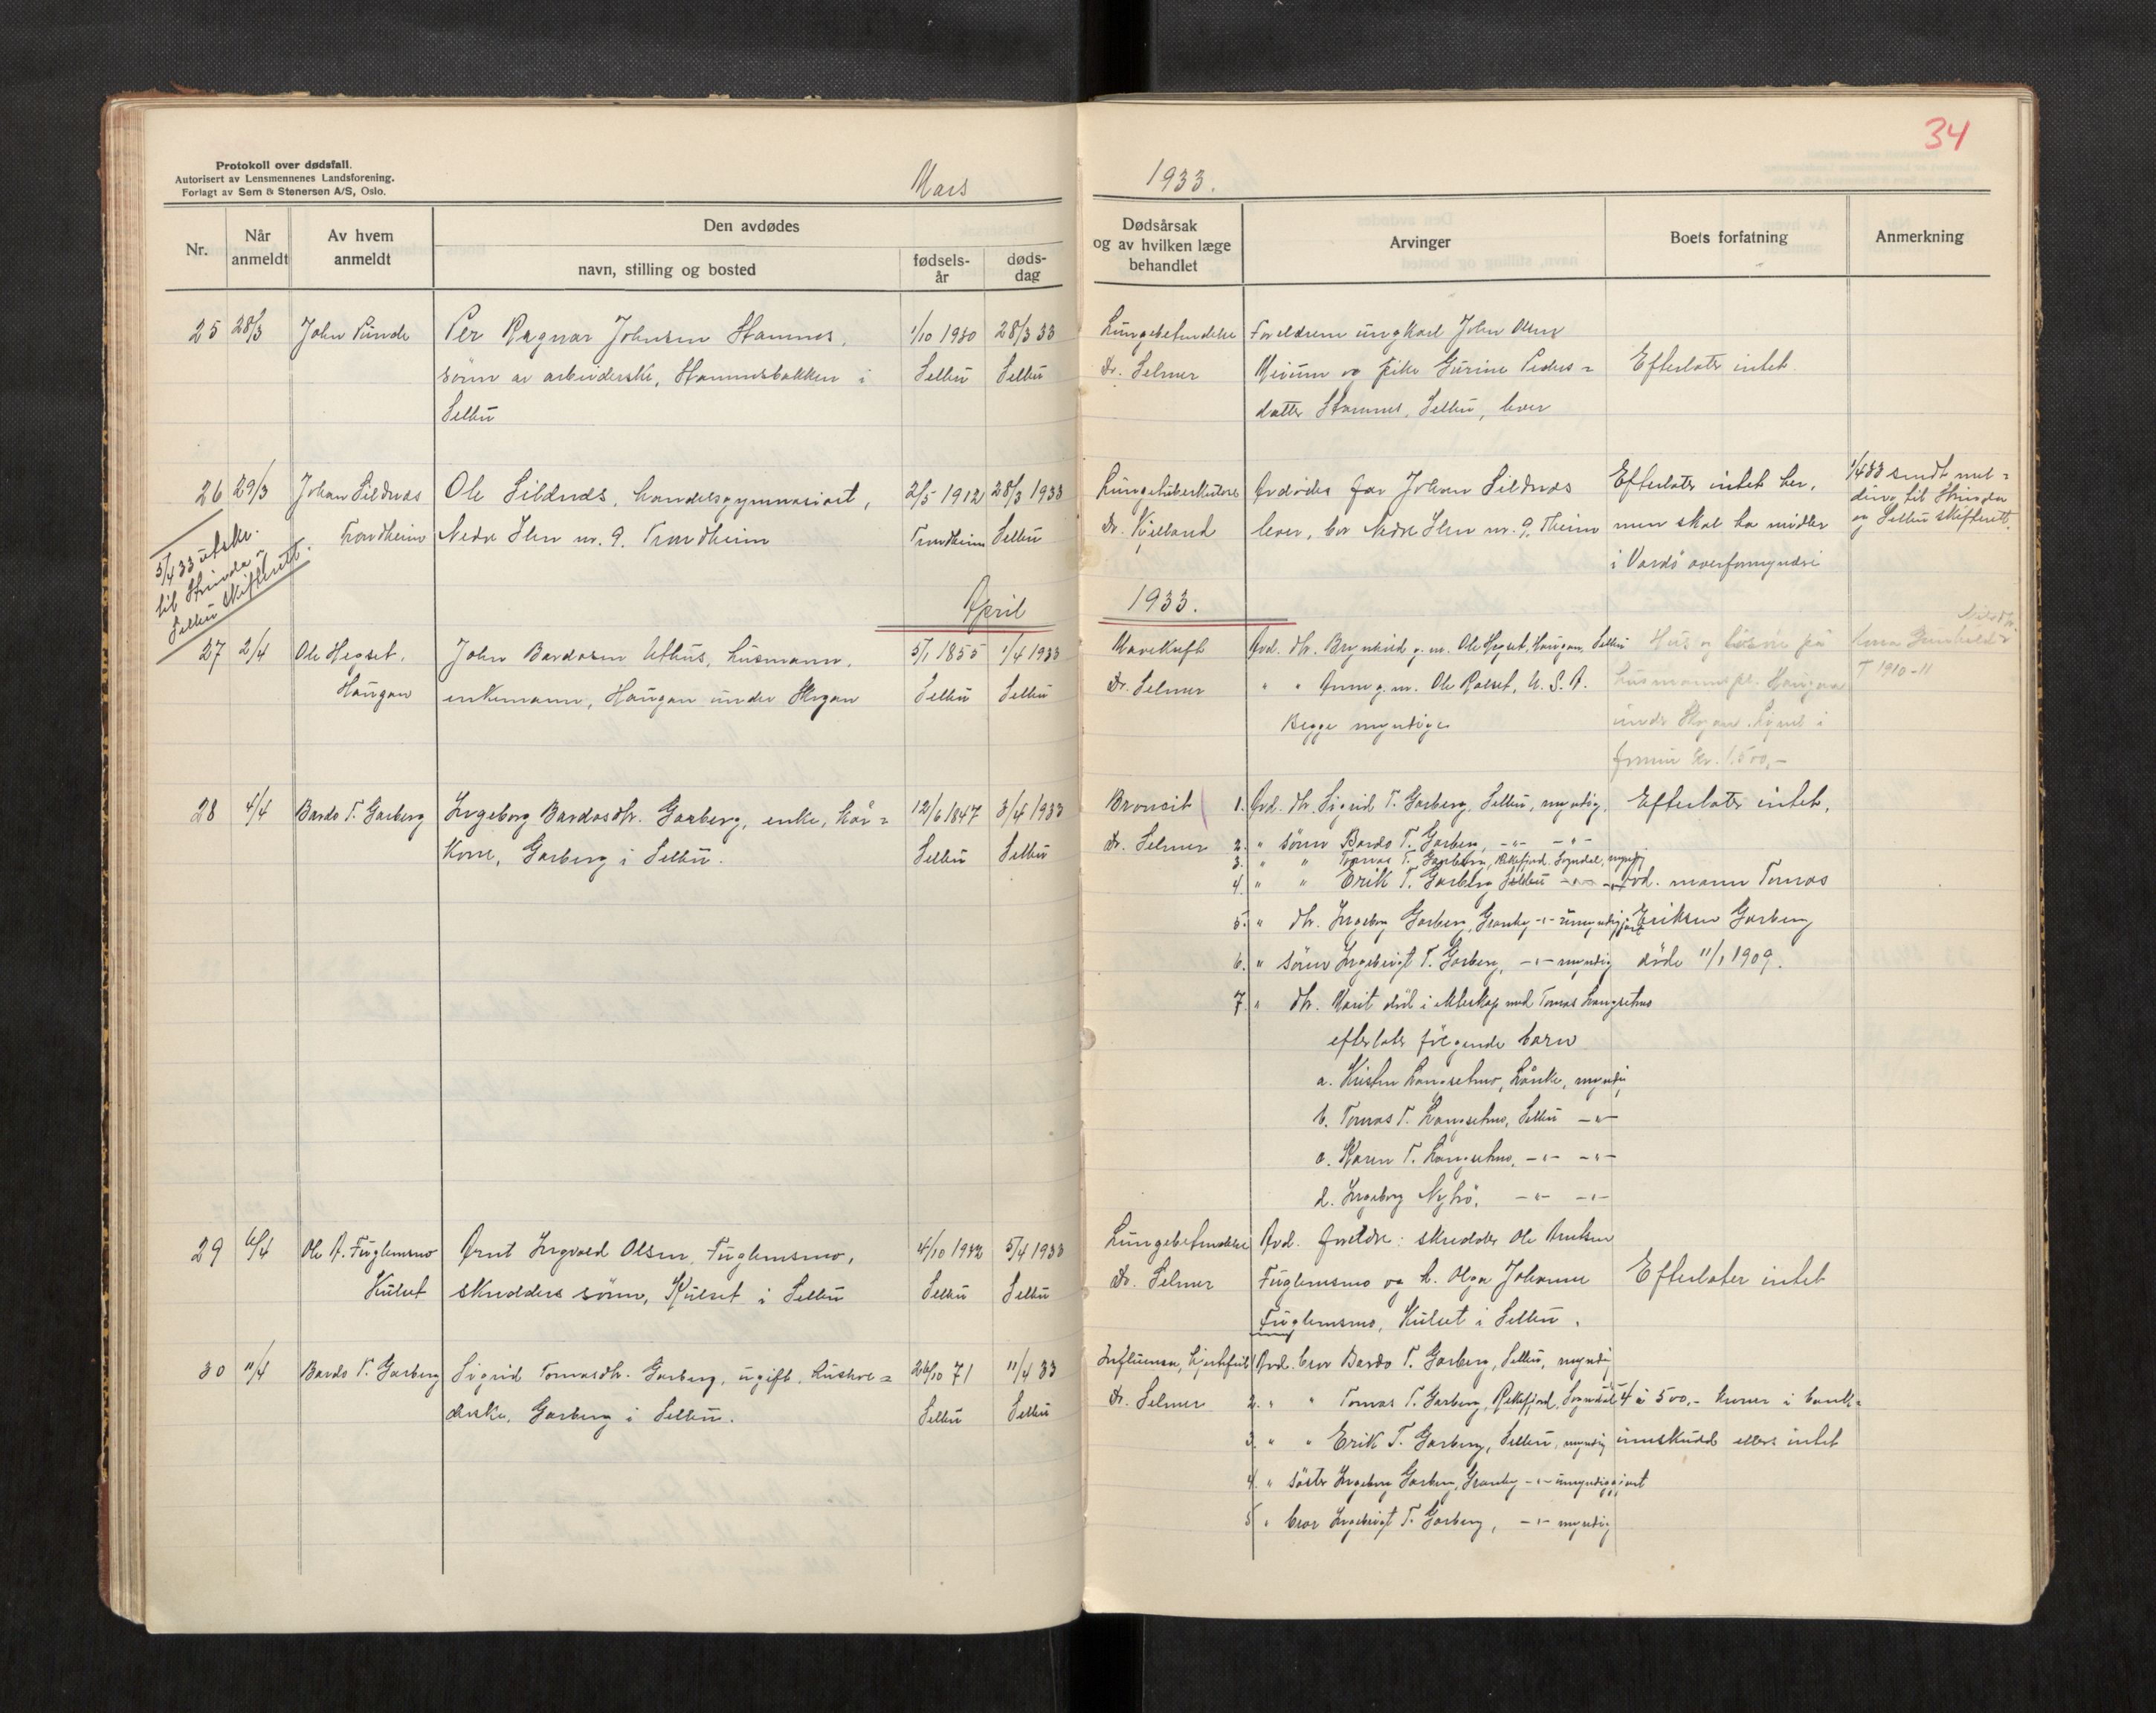 34
Protokoll over dødsfall.
Autorisert av Lensmennenes Landsforening.
Forlagt av Sem & Stenersen A/S, Oslo.
Mars 1933.
Nr. Når anmeldt Av hvem anmeldt Den avdødes navn, stilling og bosted fødselsår dødsdag
Dødsårsak og av hvilken læge behandlet Arvinger Boets forfatning Anmerkning
25 28/3 John Runde Per Ragnar Johnsen Stamnes, 1/10 1930 28/3 33 Lungebetendelse Foreldrene ungkarl John Olsen
sønn av arbeiderske, Stamnesbakken i Selbu Selbu Dr. Selmer og pike Gurine Peders= Efterlater intet.
Selbu datter Stamnes, Selbu, lever
26 29/3 Johan Sildnes Ole Sildnes, handelsgymnasiast, 2/5 1912 28/3 1933 Lungetuberkulose Avdødes far Johan Sildnes Efterlater intet her, 1/4 33 sendt mel=
Trondheim Nedre Ilen nr. 9. Trondheim Trondheim Selbu Dr. Kielland lever, bor Nedre Ilen nr. 9, Theim men skal ha midler ding til Strinda
i Vardø overformynderi og Selbu skifterett.
5/4 33 utskr.
til Strinda og
Selbu skifterett.
April 1933.
27 2/4 Ole Hegset, John Bardosen Uthus, husmann, 5/1 1855 1/4 1933 Mavekreft Avd. dtr. Brynhild g. m. Ole Hegset, Haugan, Selbu Hus og løsøre på
Haugan enkemann, Haugan under Skogan Selbu Selbu Dr. Selmer " " Anne g. m. Ole Rolset, U. S. A. husmannspl. Haugan † 1910-11
Begge myndige under Skogan. Lignet i
formue kr. 1.500,-
28 4/4 Bardo T. Garberg Ingeborg Bardosdtr. Garberg, enke, kår= 12/6 1847 3/4 1933 Bronsit 1. Avd. dtr. Sigrid T. Garberg, Selbu, myndig, Efterlater intet,
kone, Garberg i Selbu. Selbu Selbu Dr. Selmer 2. " sønn Bardo T. Garberg, -"- -"-
3. " " Tomas T. Garberg, Rekefjord, Sogndal, myndig
4. " " Erik T. Garberg Selbu -"- Avd. mann Tomas
5. " dtr. Ingeborg Garberg, Granby -"- umyndiggjort Eriksen Garberg
6. " sønn Ingebrigt T. Garberg, -"- myndig døde 11/1 1909.
7. " dtr. Marit død i ekteskap med Tomas Langsetmo
efterlater følgende barn
a. Kristen Langsetmo, Lånke, myndig
b. Tomas T. Langsetmo, Selbu -"-
c. Karen T. Langsetmo, -"- -"-
d. Ingeborg Nytrø, -"- -"-
29 6/4 Ole A. Fuglemsmo Arnt Ingvald Olsen Fuglemsmo, 4/10 1932 5/4 1933 Lungebetendelse Avd. foreldre: skredder Ole Arntsen
Kulset skredders sønn, Kulset i Selbu Selbu Selbu Dr. Selmer Fuglemsmo og h. Olga Johanne Efterlater intet
Fuglemsmo, Kulset i Selbu.
30 11/4 Bardo T. Garberg Sigrid Tomasdtr. Garberg, ugift, hushol= 26/10 71 11/4 33 Influensa, hjertefeil Avd. bror Bardo T. Garberg, Selbu, myndig
derske, Garberg i Selbu. Selbu Selbu Dr. Selmer 2. " " Tomas T. Garberg, Rekefjord, Sogndal 4 à 500,- kroner i bank=
3. " " Erik T. Garberg, Selbu, myndig innskudd ellers intet
4. " søster Ingeborg Garberg, Granby -"- umyndiggjort
5. " bror Ingebrigt T. Garberg, -"- myndig